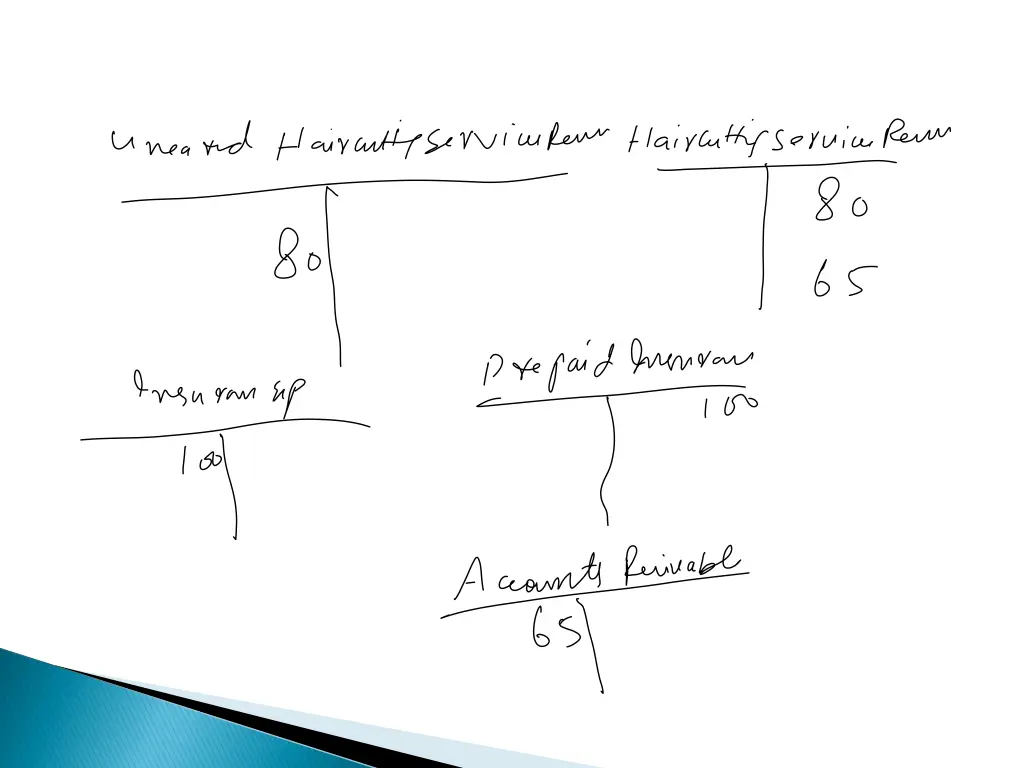 Unearned Haircutting Service Revenue
Haircutting Service Revenue
80
80
65
Insurance exp
Prepaid Insurance
100
100
Accounts Receivable
65